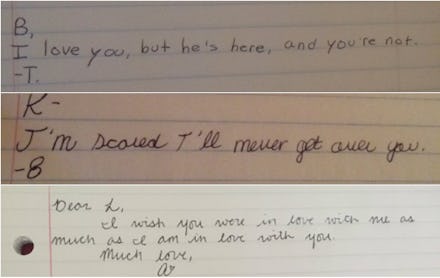 B,
I love you, but he's here, and you're not.
-T.
K-
I'm scared I'll never get over you.
-8
Dear L,
I wish you were in love with me as
much as I am in love with you.
Much love,